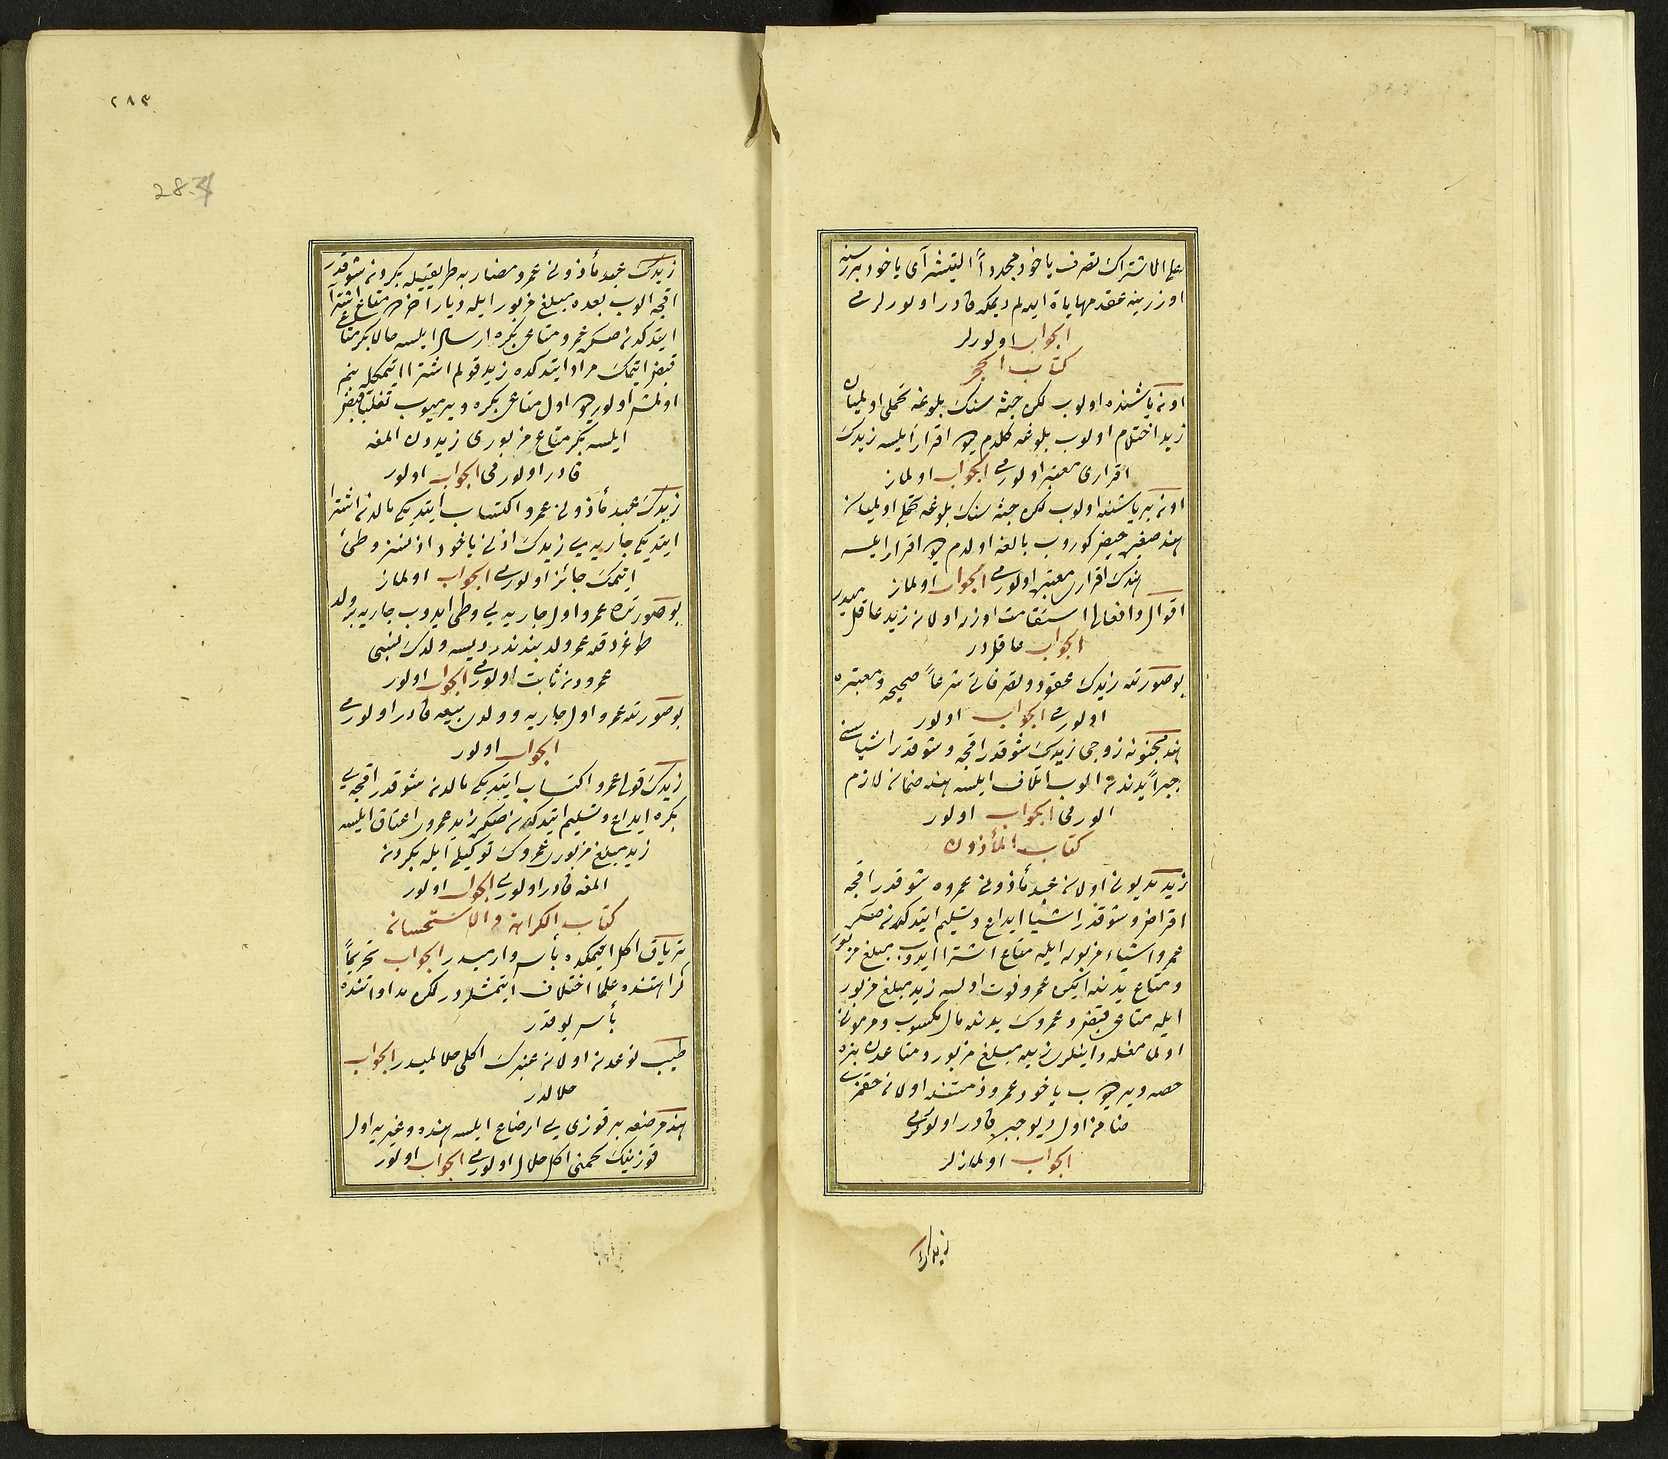 على الاشتراك تصرف ياخود مجددا التيشر آى ياخود بررسنه
اوزرينه عقد مهاياة ايدلم ديمكه قادر اولورلرمى
الجواب اولورلر
كتاب الحجر
اون ياشنده اولوب لكن جثه سنك بلوغه تحملى اوليان
زيد احتلام اولوب بلوغه كلدم ديو اقرار ايلسه زيدك
اقرارى معتبر اولورمى الجواب اولماز
اون بر ياشنده اولوب لكن جثه سنك بلوغه تحملى اوليان
هند صغيره حيض كوروب بالغه اولدم ديو اقرار ايلسه
هندك اقرارى معتبر اولورمى الجواب اولماز
اقوال وافعالى استقامت اوزره اولان زيد عاقلميدر
الجواب عاقلدر
بو صورتده زيدك عقود وتصرفاتى شرعاً صحيحه ومعتبره
اولورمى الجواب اولور
هند مجنونه زوجى زيدك شوقدر اقچه وشوقدر اشياسنى
جبراً يدندن الوب اتلاف ايلسه هنده ضمان لازم
اولورمى الجواب اولور
كتاب المأذون
زيد مديونى اولان عبد مأذونى عمروه شوقدر اقچه
اقراض وشوقدر اشيا ايداع وتسليم ايتدكدن صكره
عمرو اشياء مزبوره ايله متاع اشترا ايدوب مبلغ مزبور
ومتاع يدنده ايكن عمرو فوت اولسه زيد مبلغ مزبور
ايله متاعى قبض وعمروك يدنده مال مكسوب ومرهونى
اولمامغله داينلرى زيده مبلغ مزبور ومتاعدن بزه
حصه وير ديوب ياخود عمرو ذمتنده اولان حقمزى
ضامن اول ديو جبره قادر اولورلرمى
الجواب اولمازلر
زيدك
٢٨٣
283
زيدك عبد مأذونى عمرو مضاربه طريقيله بكردن شوقدر
اقچه الوب بعده مبلغ مزبور ايله ديار اخرده متاع اشترا
ايتدكدن صكره عمرو متاعى بكره ارسال ايلسه حالا بكر متاعى
قبض ايتمك مراد ايتدكده زيد قولم اشترا ايتمكله بنم
اولمش اولور ديو اول متاعى بكره ويرميوب تغلباً قبض
ايلسه بكر متاع مزبورى زيددن المغه
قادر اولورمى الجواب اولور
زيدك عبد مأذونى عمرو اكتساب ايتديكى مالدن اشترا
ايتديكى جاريه يى زيدك اذنى ياخود اذنسز وطئ
ايتمك جائز اولورمى الجواب اولماز
بو صورتده عمرو اول جاريه يى وطئ ايدوب جاريه بر ولد
طوغردقده عمرو ولد بندندر ديسه ولدك نسبى
عمرودن ثابت اولورمى الجواب اولور
بو صورتده عمرو اول جاريه وولدى بيعه قادر اولورمى
الجواب اولور
زيدك قولى عمرو اكتساب ايتديكى مالدن شوقدر اقچه يى
بكره ايداع وتسليم ايتدكدن صكره زيد عمروى اعتاق ايلسه
زيد مبلغ مزبورى عمروك توكيلى ايله بكردن
المغه قادر اولورمى الجواب اولور
كتاب الكراهة والاستحسان
ترياق اكل ايتمكده بأس وارميدر الجواب تحريماً
كراهتنده علما اختلاف ايتمشلردر لكن مداواتنده
بأس يوقدر
طيب نوعدن اولان عنبرك اكلى حلالميدر الجواب
حلالدر
هند مرضعه بر قوزى يى ارضاع ايلسه هنده وغيريه اول
قوزينك لحمنى اكل حلال اولورمى الجواب اولور